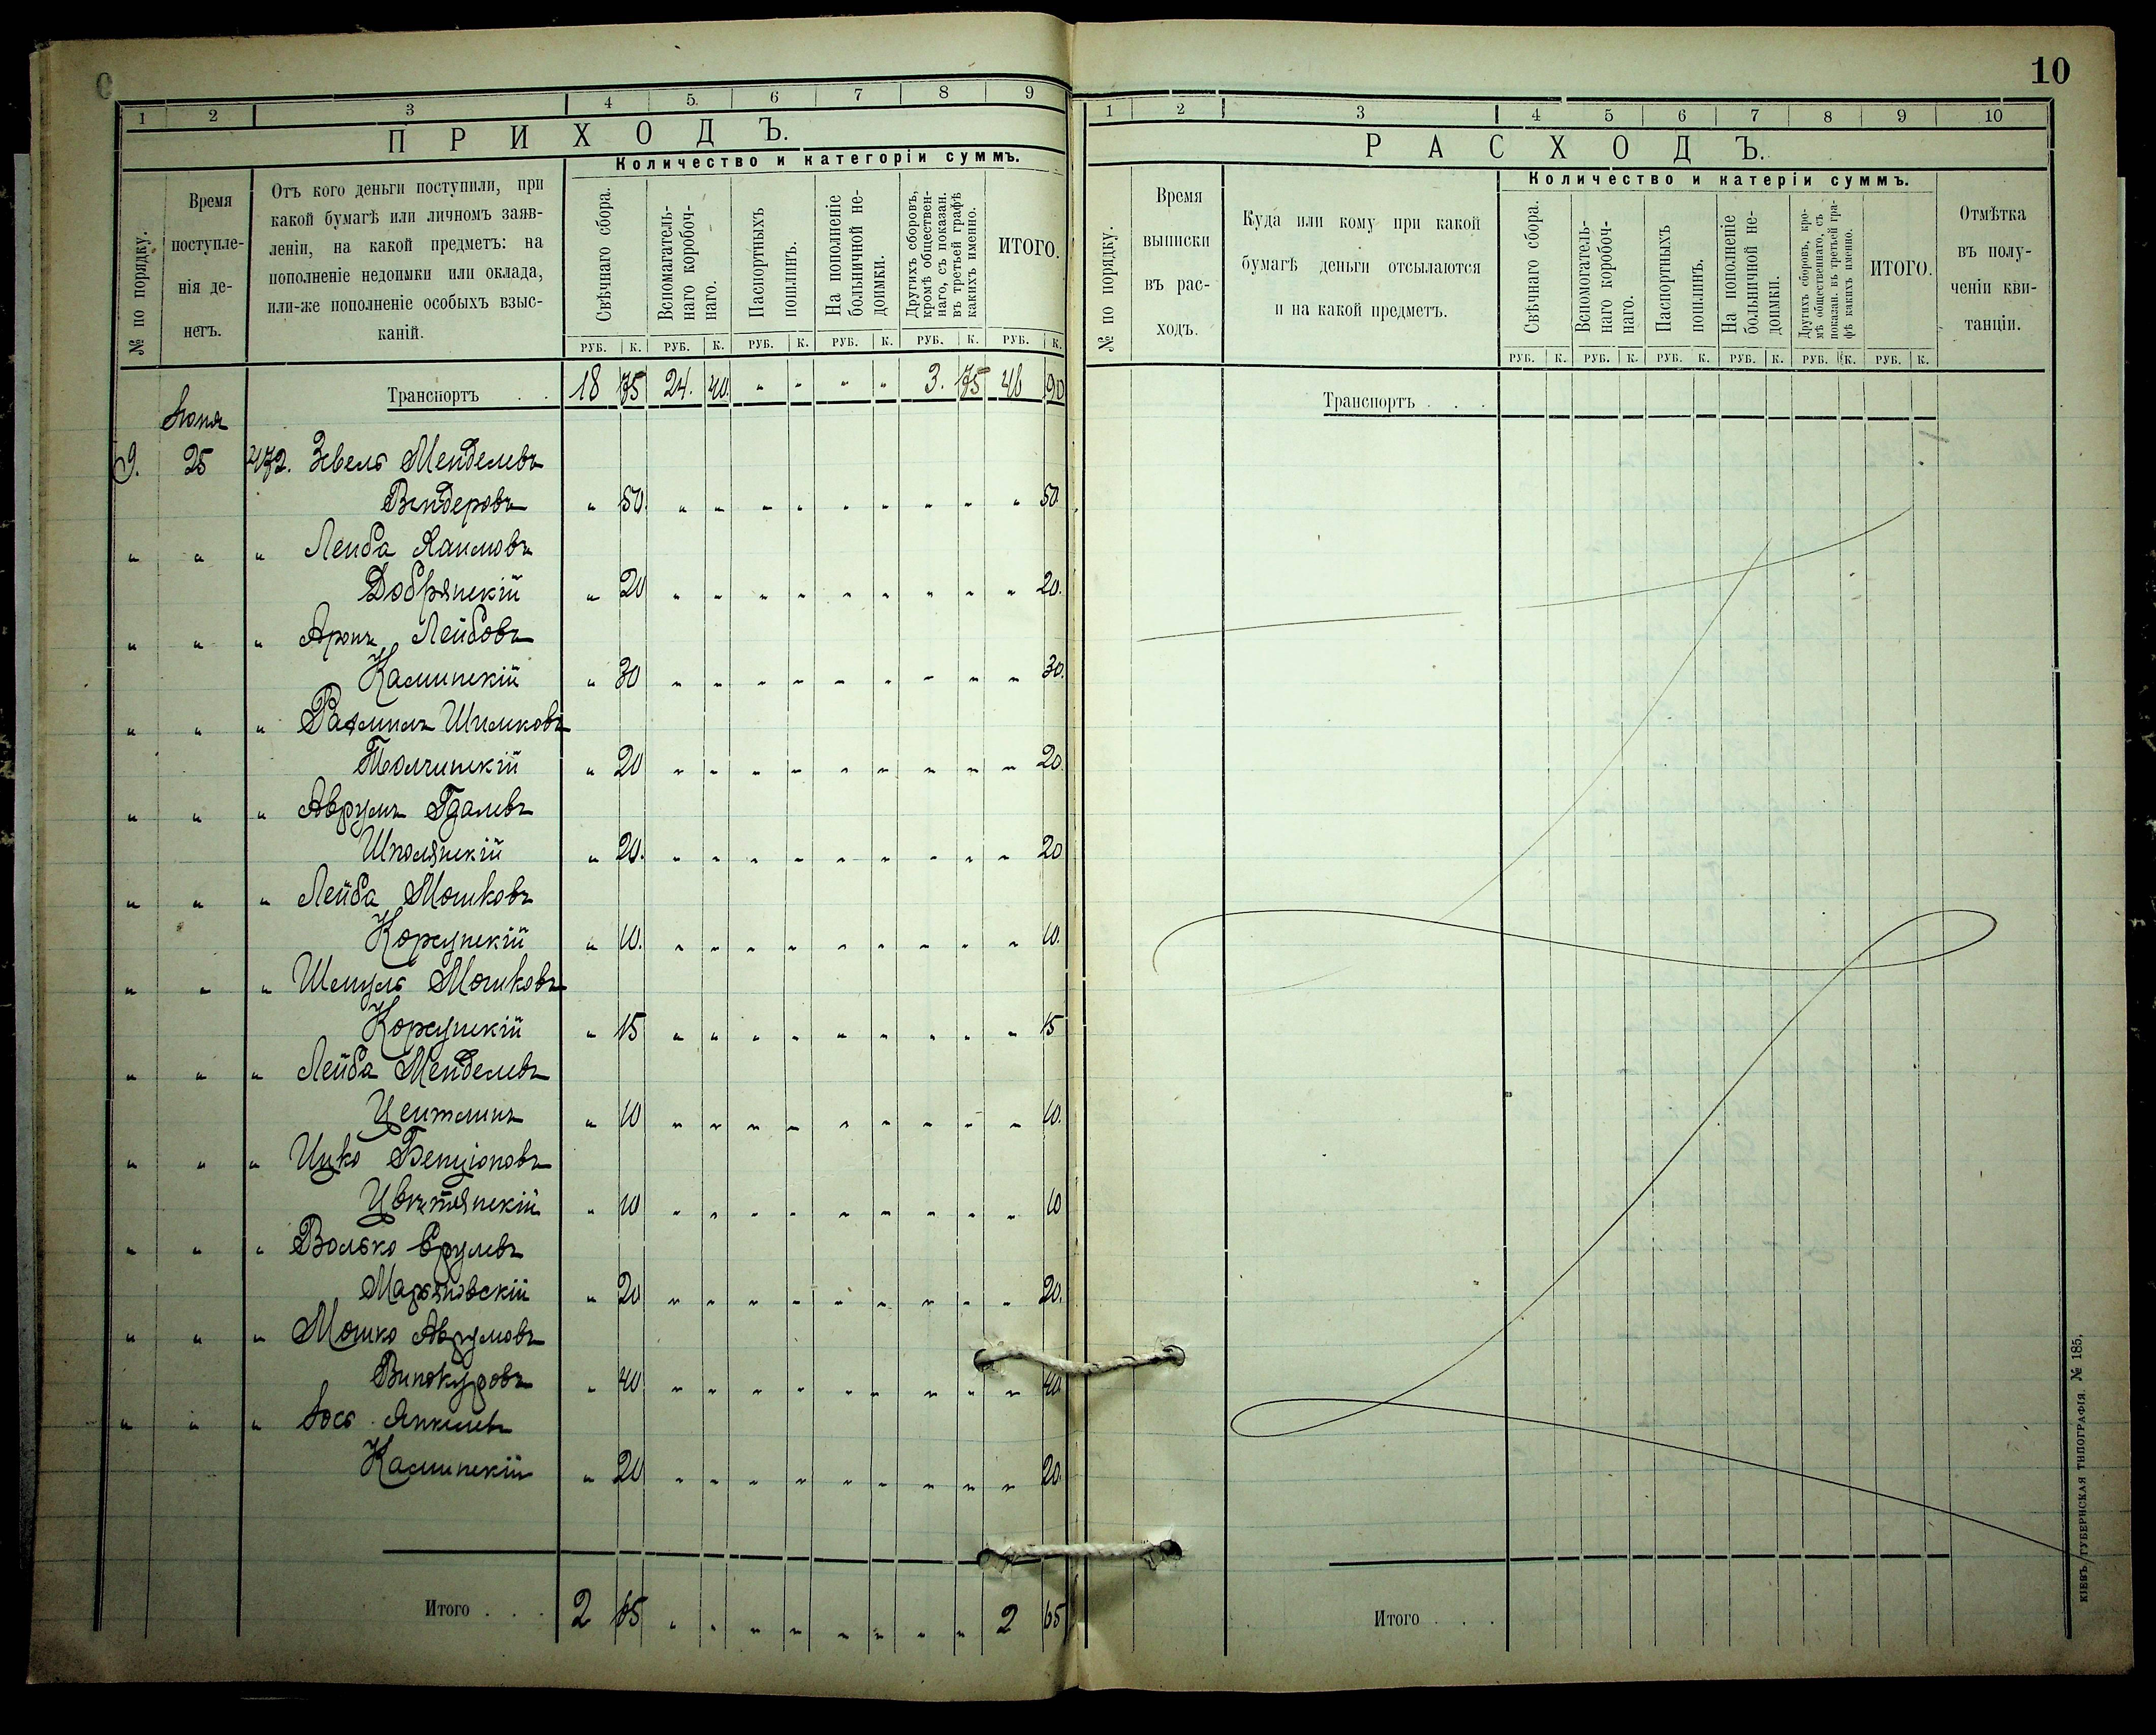 10
1 2 3 4 5. 6 7 8 9
ПРИХОДЪ.
№ по порядку.
Время поступле-
нія де-
негъ.
Отъ кого деньги поступили, при
какой бумагѣ или личномъ заяв-
леніи, на какой предметъ: на
пополненіе недоимки или оклада,
или-же пополненіе особыхъ взыс-
каній.
Количество и категоріи суммъ.
Свѣчнаго сбора.
Вспомагатель-
наго коробоч-
наго.
Паспортныхъ
пошлинъ.
На пополненіе
больничной не-
доимки.
Другихъ сборовъ,
кромѣ обществен-
наго, съ показан.
въ третьей графѣ
какихъ именно.
ИТОГО.
РУБ. К. РУБ. К. РУБ. К. РУБ. К. РУБ. К. РУБ. К.
Транспортъ . . 18 75 24. 40. " " " " 3. 75 46 90
Іюня
9. 25 472. Зевель Менделевъ
Биндеровъ " 50. " " " " " " " " " 50
" " " Лейба Хаимовъ
Добрянскій " 20 " " " " " " " " " 20.
" " " Аронъ Лейбовъ
Каминскій " 30 " " " " " " " " " 30.
" " " Рахмилъ Шимковъ
Толчинскій " 20 " " " " " " " " " 20.
" " " Аврумъ Гдалевъ
Шполянскій " 20. " " " " " " " " " 20
" " " Лейба Мошковъ
Корсунскій " 10. " " " " " " " " " 10.
" " " Шмуль Мошковъ
Корсунскій " 15 " " " " " " " " " 15
" " " Лейба Менделевъ
Цейтлинъ " 10 " " " " " " " " " 10.
" " " Ицко Бенціоновъ
Цвѣтянскій " 10 " " " " " " " " " 10
" " " Волько Срулевъ
Марьяновскій " 20 " " " " " " " " " 20.
" " " Мошко Аврумовъ
Винокуровъ " 40 " " " " " " " " " 40
" " " Іось Янкелевъ
Каминскій " 20 " " " " " " " " " 20.
Итого . . . 2 65 " " " " " " " " 2 65
1 2 3 4 5 6 7 8 9 10
РАСХОДЪ.
№ по порядку.
Время
выписки
въ рас-
ходъ.
Куда или кому при какой
бумагѣ деньги отсылаются
и на какой предметъ.
Количество и катеріи суммъ.
Свѣчнаго сбора.
Вспомогатель-
наго коробоч-
наго.
Паспортныхъ
пошлинъ.
На пополненіе
больничной не-
доимки.
Другихъ сборовъ, кро-
мѣ общественнаго, съ
показан. въ третьей гра-
фѣ какихъ именно.
ИТОГО.
Отмѣтка
въ полу-
ченіи кви-
танціи.
РУБ. К. РУБ. К. РУБ. К. РУБ. К. РУБ. К. РУБ. К.
Транспортъ . . .
Итого . . .
КІЕВЪ, ГУБЕРНСКАЯ ТИПОГРАФІЯ. № 185.